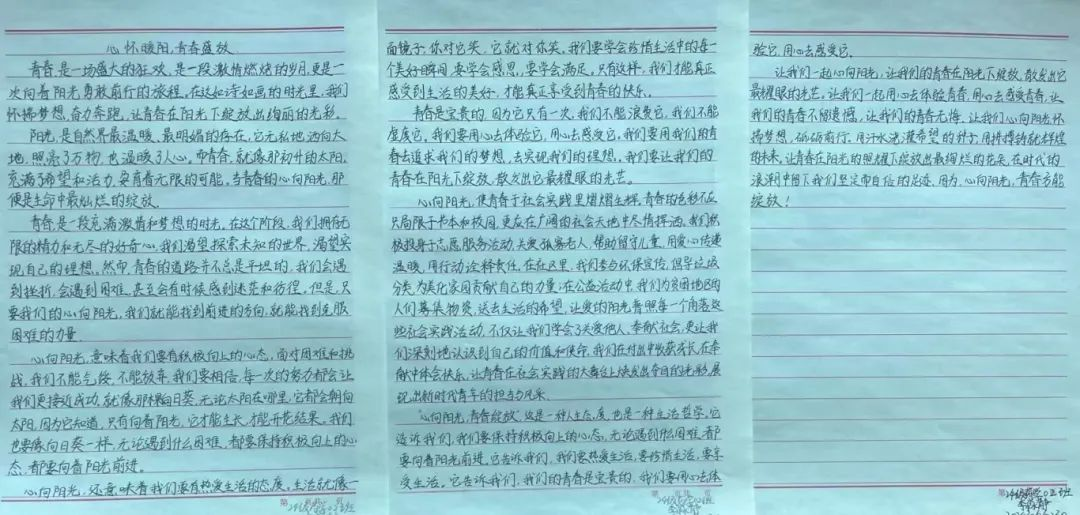 心怀暖阳,青春盛放
青春,是一场盛大的狂欢,是一段激情燃烧的岁月,更是一
次向着阳光勇敢前行的旅程,在这如诗如画的时光里,我们
怀揣梦想,奋力奔跑,让青春在阳光下绽放出绚丽的光彩。
阳光,是自然界最温暖、最明媚的存在,它无私地洒向大
地,照亮了万物,也温暖了人心。而青春,就像那初升的太阳,
充满了希望和活力,孕育着无限的可能。当青春的心向阳光,那
便是生命中最灿烂的绽放。
青春是一段充满激情和梦想的时光,在这个阶段,我们拥有无
限的精力和无尽的好奇心,我们渴望探索未知的世界,渴望实
现自己的理想。然而,青春的道路并不总是平坦的,我们会遇
到挫折,会遇到困难,甚至会有时候感到迷茫和彷徨。但是,只
要我们的心向阳光,我们就能找到前进的方向,就能找到克服
困难的力量.
心向阳光,意味着我们要有积极向上的心态,面对困难和挑
战,我们不能气馁,不能放弃,我们要相信,每一次的努力都会让
我们更接近成功,就像那棵向日葵,无论太阳在哪里,它都会朝向
太阳,因为它知道,只有向着阳光,它才能生长,才能开花结果,我们
也要像向日葵一样,无论遇到什么困难,都要保持积极向上的心
态,都要向着阳光前进。
心向阳光,还意味着我们要有热爱生活的态度,生活就像一
面镜子,你对它笑,它就对你笑,我们要学会珍惜生活中的每一
个美好瞬间,要学会感恩,要学会满足。只有这样,我们才能真正
感受到生活的美好,才能真正享受到青春的快乐。
青春是宝贵的,因为它只有一次,我们不能浪费它,我们不能
虚度它,我们要用心去体验它,用心去感受它,我们要用我们的青
春去追求我们的梦想,去实现我们的理想,我们要让我们的
青春在阳光下绽放,散发出它最耀眼的光芒。
心向阳光,使青春于社会实践里熠熠生辉,青春的色彩不应
只局限于书本和校园,更应在广阔的社会天地中尽情挥洒,我们积
极投身于志愿服务活动,关爱孤寡老人,帮助留守儿童,用爱心传递
温暖,用行动诠释责任,在社区里,我们参与环保宣传,倡导垃圾
分类,为美化家园贡献自己的力量;在公益活动中,我们为贫困地区的
人们募集物资,送去生活的希望,让爱的阳光普照每一个角落这
些社会实践活动,不仅让我们学会了关爱他人、奉献社会,更让我
们深刻地认识到自己的价值和使命,我们在付出中收获成长,在奉
献中体会快乐,让青春在社会实践的大舞台上焕发出夺目的光彩,展
现出新时代青年的担当与风采、
"心向阳光,青春绽放"这是一种人生态度,也是一种生活哲学,它
告诉我们,我们要保持积极向上的心态,无论遇到什么困难,都
要向着阳光前进,它告诉我们,我们要热爱生活,要珍惜生活,要享
受生活。它告诉我们,我们的青春是宝贵的,我们要用心去体
验它,用心去感受它,
让我们一起心向阳光,让我们的青春在阳光下绽放,散发出它
最耀眼的光芒。让我们一起用心去体验青春,用心去感受青春,让
我们的青春不留遗憾,让我们的青春无悔、让我们心向阳光,怀
揣梦想,砥砺前行,用汗水浇灌希望的种子,用拼搏铸就辉煌
的未来,让青春在阳光的照耀下绽放出最绚烂的花朵,在时代的
浪潮中留下我们坚定而自信的足迹,因为,心向阳光,青春方能
绽放!